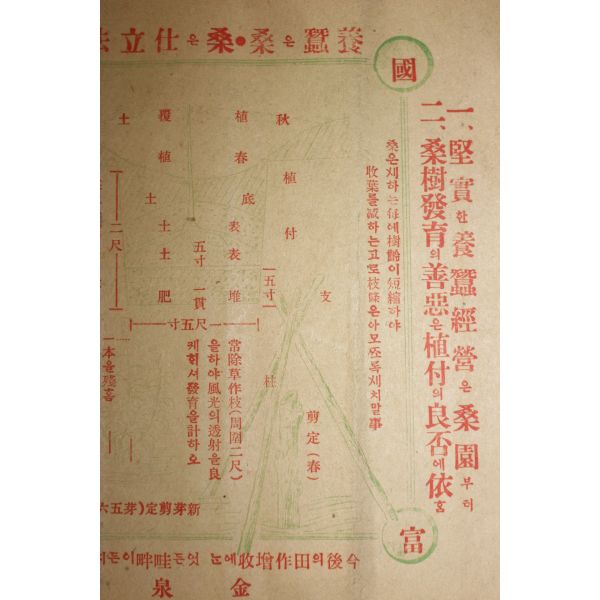 養蠶은桑●桑은仕立法
國
一、堅實한養蠶經營은桑園부터
二、桑樹發育의善惡은植付의良否에依홈
桑은채하는每에樹齡이短縮하야
收葉를減하는고로枝條은아모조록채치말事
秋植付
支柱
剪定(春)
植春底
表表堆
一五寸一
覆植土土肥
土
五寸一貫
二尺
一尺五寸
常除草作枝(周圍二尺)
을하야風光의透射을良
케하셔發育을計하오
一本을殘홈
新芽剪定(芽五六
富
今後의田作增收에는 잇든畦畔이든
金泉